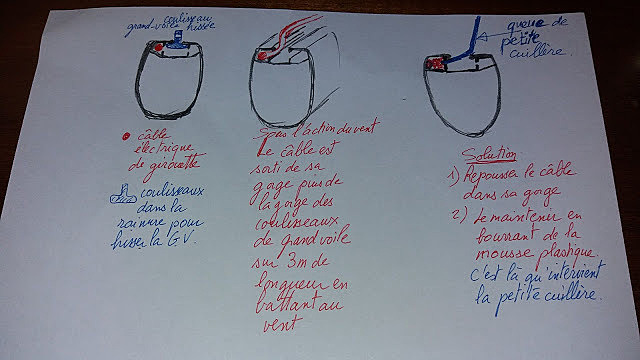 coulisseau
grand-voile hissée
câble
électrique
de girouette
coulisseaux
dans la
rainure pour
hisser la GV.
Sous l'action du vent
le câble est
sorti de sa
gorge puis de
la gorge des
coulisseaux
de grand voile
sur 3m de
longueur en
battant au
vent
queue de
petite
cuillère.
Solution
1) Repousser le câble
dans sa gorge
2) Le maintenir en
bourrant de la
mousse plastique.
C'est là qu'intervient
la petite cuillère.